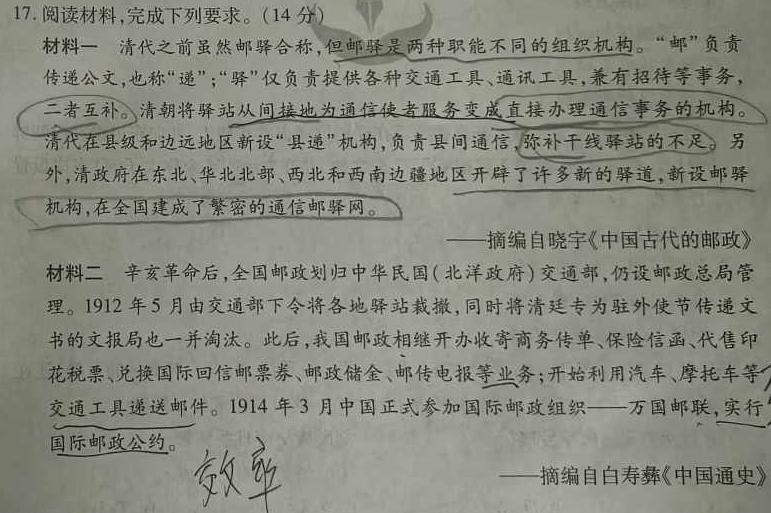 17. 阅读材料,完成下列要求。(14 分)
材料一 清代之前虽然邮驿合称,但邮驿是两种职能不同的组织机构。“邮”负责
传递公文,也称“递”;“驿”仅负责提供各种交通工具、通讯工具,兼有招待等事务,
二者互补。清朝将驿站从间接地为通信使者服务变成直接办理通信事务的机构。
清代在县级和边远地区新设“县递”机构,负责县间通信,弥补干线驿站的不足。另
外,清政府在东北、华北北部、西北和西南边疆地区开辟了许多新的驿道,新设邮驿
机构,在全国建成了繁密的通信邮驿网。
——摘编自晓宇《中国古代的邮政》
材料二 辛亥革命后,全国邮政划归中华民国(北洋政府)交通部,仍设邮政总局管
理。1912 年 5 月由交通部下令将各地驿站裁撤,同时将清廷专为驻外使节传递文
书的文报局也一并淘汰。此后,我国邮政相继开办收寄商务传单、保险信函、代售印
花税票、兑换国际回信邮票券、邮政储金、邮传电报等业务;开始利用汽车、摩托车等
交通工具递送邮件。1914 年 3 月中国正式参加国际邮政组织——万国邮联,实行
国际邮政公约。
效率
——摘编自白寿彝《中国通史》